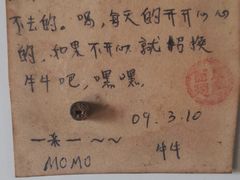 不去的。嗯,每天的开开心心
的,如果不开心就招换
牛牛吧,嘿嘿.
09.3.10
一亲一~~
MOMO
牛牛